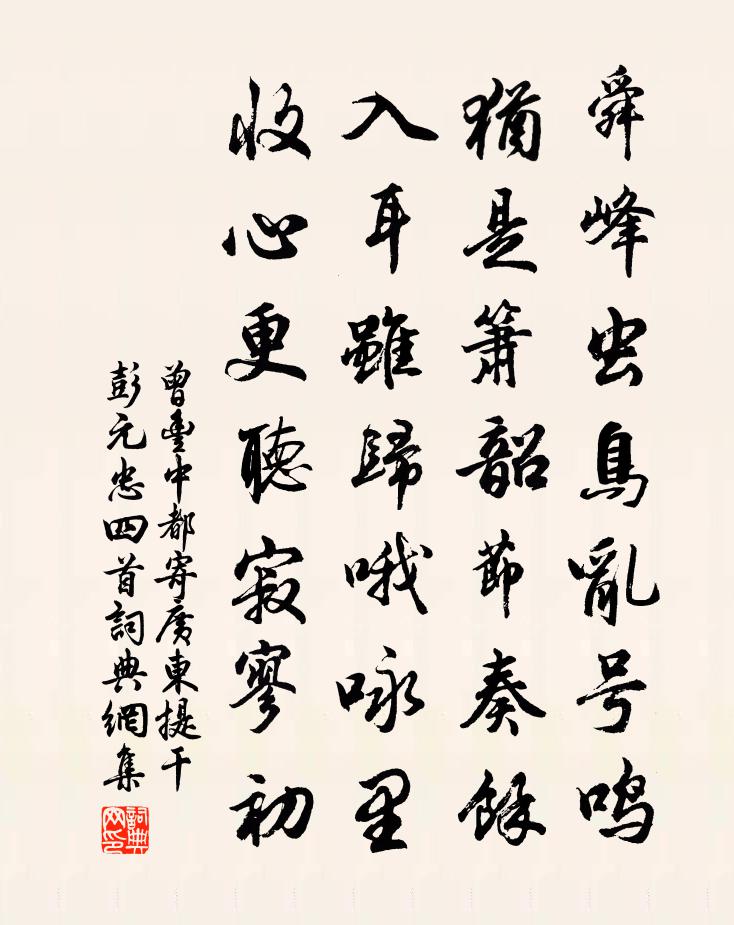 舜峰虫鳥亂号鳴
猶是簫韶節奏餘
入耳雖歸哦咏里
收心更聽寂寥初
曾豊中都寄廣東提干
彭元忠四首詞典網集
詞典網印